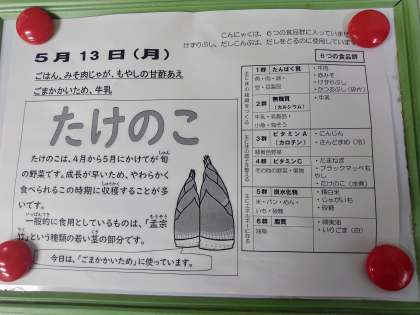 こんにゃくは、6つの食品群に入っていません
けずりぶし、だしこんぶは、だしをとるのに使用しています
5月13日(月)
ごはん、みそ肉じゃが、もやしの甘酢あえ
ごまかかいため、牛乳
たけのこ
たけのこは、4月から5月にかけてが旬
の野菜です。成長が早いため、やわらかく
食べられるこの時期に収穫することが多
いです。
一般的に食用としているものは、「孟宗
竹」という種類の若い茎の部分です。
今日は、「ごまかかいため」に使っています。
6つの食品群
1群 たんぱく質
魚・肉・卵・
豆・豆製品
・牛肉
・赤みそ
・けずりぶし
・かつおぶし
2群 無機質
(カルシウム)
牛乳・乳製品・
小魚・海そう
・牛乳
3群 ビタミンA
(カロテン)
緑黄色野菜
・にんじん
・さんどまめ(冷)
4群 ビタミンC
その他の野菜・果物
・たまねぎ
・ブラックマッペも
やし
・たけのこ(水煮)
5群 炭水化物
米・パン・めん・
いも・砂糖
・精白米
・じゃがいも
・砂糖
6群 脂質
油脂
・綿実油
・いりごま(白)